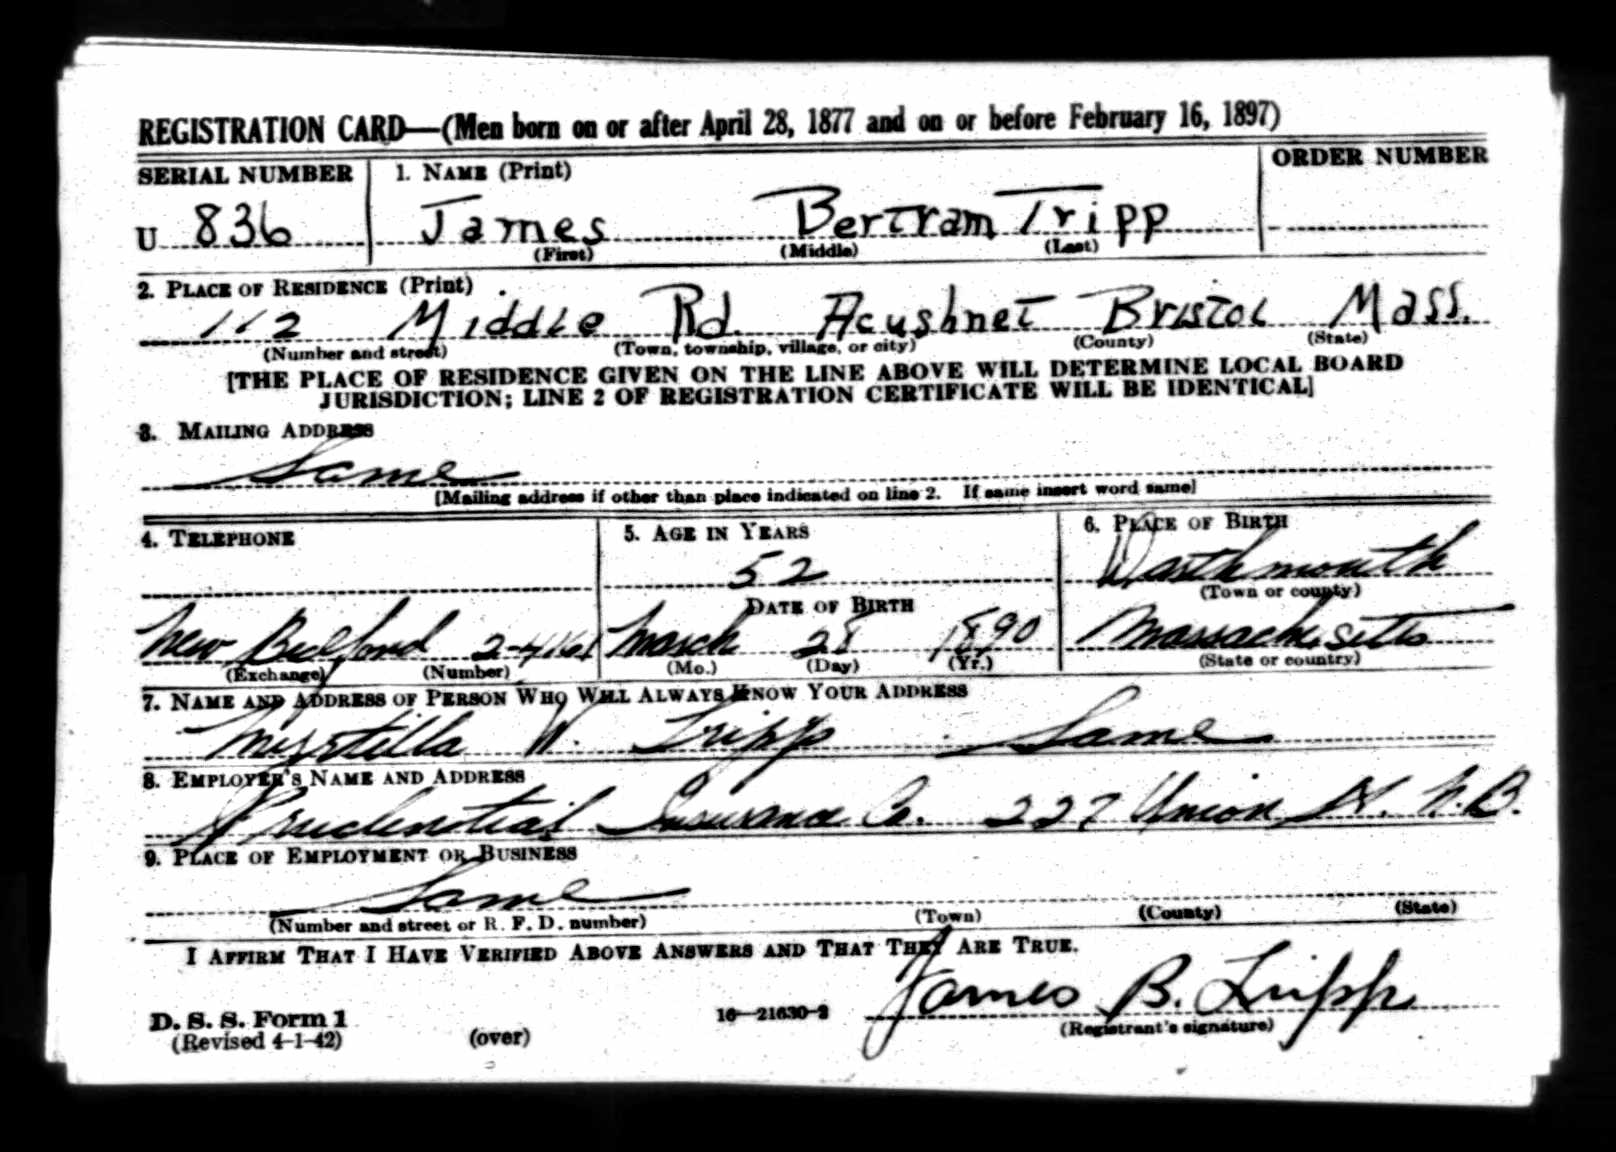 REGISTRATION CARD—(Men born on or after April 28, 1877 and on or before February 16, 1897)
SERIAL NUMBER 1. NAME (Print) ORDER NUMBER
U 836 James Bertram Tripp
(First) (Middle) (Last)
2. PLACE OF RESIDENCE (Print)
112 Middle Rd. Acushnet Bristol Mass.
(Number and street) (Town, township, village, or city) (County) (State)
[THE PLACE OF RESIDENCE GIVEN ON THE LINE ABOVE WILL DETERMINE LOCAL BOARD
JURISDICTION; LINE 2 OF REGISTRATION CERTIFICATE WILL BE IDENTICAL]
3. MAILING ADDRESS
Same
[Mailing address if other than place indicated on line 2. If same insert word same]
4. TELEPHONE 5. AGE IN YEARS 6. PLACE OF BIRTH
52 Darthmouth
(Town or county)
DATE OF BIRTH
New Bedford March 28 1890 Massachusetts
(Exchange) (Number) (Mo.) (Day) (Yr.) (State or country)
7. NAME AND ADDRESS OF PERSON WHO WILL ALWAYS KNOW YOUR ADDRESS
Myrtilla W. Tripp Same
8. EMPLOYER'S NAME AND ADDRESS
Prudential Insurance Co. 227 Union St. N.B.
9. PLACE OF EMPLOYMENT OR BUSINESS
Same
(Number and street or R. F. D. number) (Town) (County) (State)
I AFFIRM THAT I HAVE VERIFIED ABOVE ANSWERS AND THAT THEY ARE TRUE.
James B. Tripp
D. S. S. Form 1 16—21630-2 (Registrant's signature)
(Revised 4-1-42) (over)